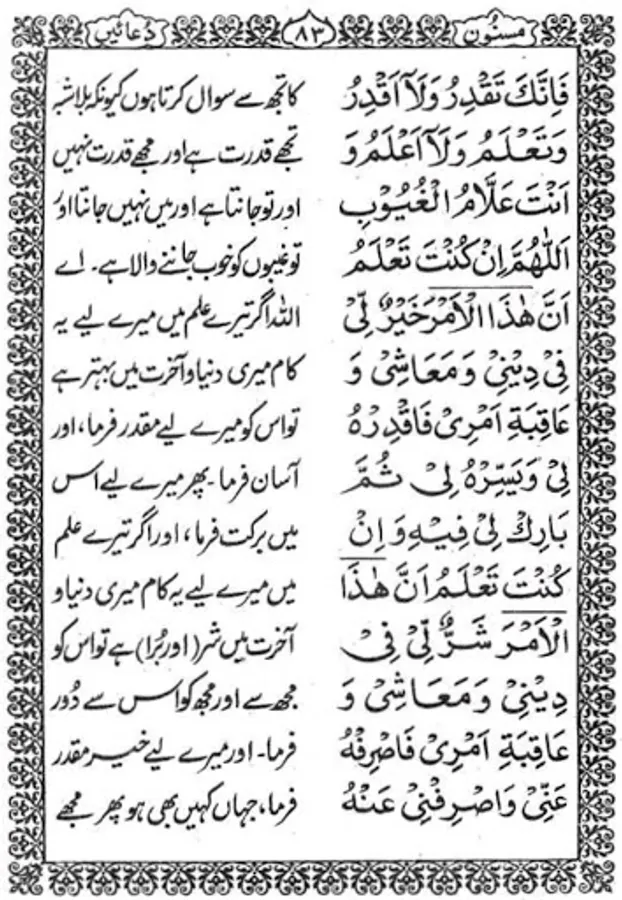 مسنُون
۸۳
دُعائیں
فَاِنَّكَ تَقْدِرُ وَلَآ اَقْدِرُ
وَتَعْلَمُ وَلَآ اَعْلَمُ وَ
اَنْتَ عَلَّامُ الْغُيُوْبِ
اَللّٰهُمَّ اِنْ كُنْتَ تَعْلَمُ
اَنَّ هٰذَا الْاَمْرَ خَيْرٌ لِّيْ
فِيْ دِيْنِيْ وَمَعَاشِيْ وَ
عَاقِبَةِ اَمْرِيْ فَاقْدِرْهُ
لِيْ وَيَسِّرْهُ لِيْ ثُمَّ
بَارِكْ لِيْ فِيْهِ وَاِنْ
كُنْتَ تَعْلَمُ اَنَّ هٰذَا
الْاَمْرَ شَرٌّ لِّيْ فِيْ
دِيْنِيْ وَمَعَاشِيْ وَ
عَاقِبَةِ اَمْرِيْ فَاصْرِفْهُ
عَنِّيْ وَاصْرِفْنِيْ عَنْهُ
کا تجھ سے سوال کرتا ہوں کیونکہ بلاشبہ
تجھے قدرت ہے اور مجھے قدرت نہیں
اور تو جانتا ہے اور میں نہیں جانتا اور
تو غیبوں کو خوب جاننے والا ہے۔ اے
اللہ اگر تیرے علم میں میرے لیے یہ
کام میری دنیا و آخرت میں بہتر ہے
تو اس کو میرے لیے مقدر فرما، اور
آسان فرما۔ پھر میرے لیے اس
میں برکت فرما، اور اگر تیرے علم
میں میرے لیے یہ کام میری دنیا و
آخرت میں شر (اور بُرا) ہے تو اس کو
مجھ سے اور مجھ کو اس سے دُور
فرما۔ اور میرے لیے خیر مقدر
فرما، جہاں کہیں بھی ہو پھر مجھے